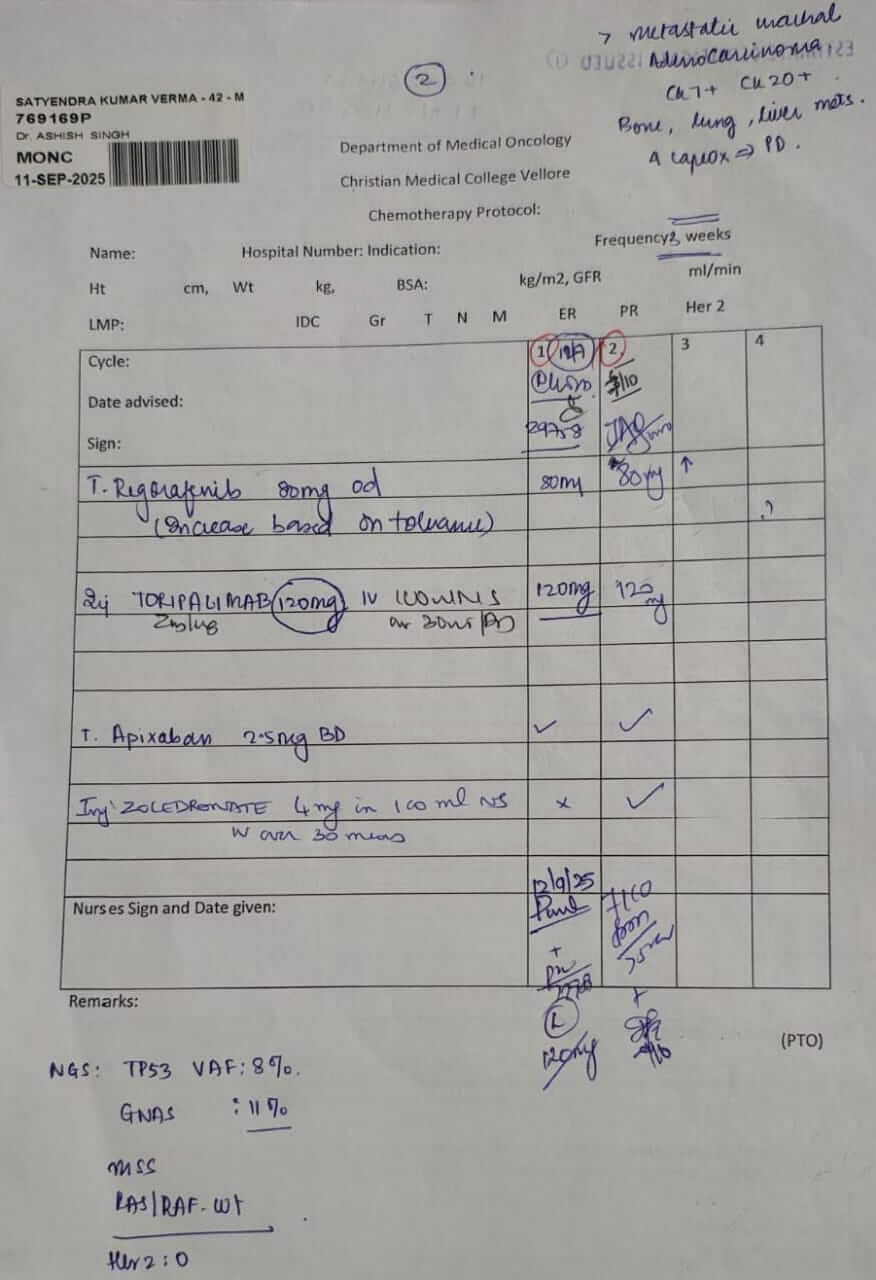 > Metastatic urachal
Adenocarcinoma
CK7+ CK20+
Bone, lung, liver mets.
CAPEOX ⇒ PD.
2
SATYENDRA KUMAR VERMA - 42 - M
769169P
Dr. ASHISH SINGH
MONC
11-SEP-2025
Department of Medical Oncology
Christian Medical College Vellore
Chemotherapy Protocol:
Frequency 3 weeks
Name: Hospital Number: Indication:
Ht cm, Wt kg, BSA: kg/m2, GFR ml/min
LMP: IDC Gr T N M ER PR Her 2
Cycle: 1 12/9 2 3 4
Date advised:
Sign: 29758
T. Regorafenib 80mg od 80mg 80mg ↑
(Increase based on tolerance)
Inj TORIPALIMAB 120mg IV 100ml NS 120mg 120mg
over 30min
T. Apixaban 2.5mg BD ✓ ✓
Inj ZOLEDRONATE 4mg in 100 ml NS x ✓
IV over 30 mins
12/9/25
Nurses Sign and Date given:
+ +
L
120mg
Remarks:
(PTO)
NGS: TP53 VAF: 8%.
GNAS : 11%
MSS
RAS/RAF-wt
Her2: 0